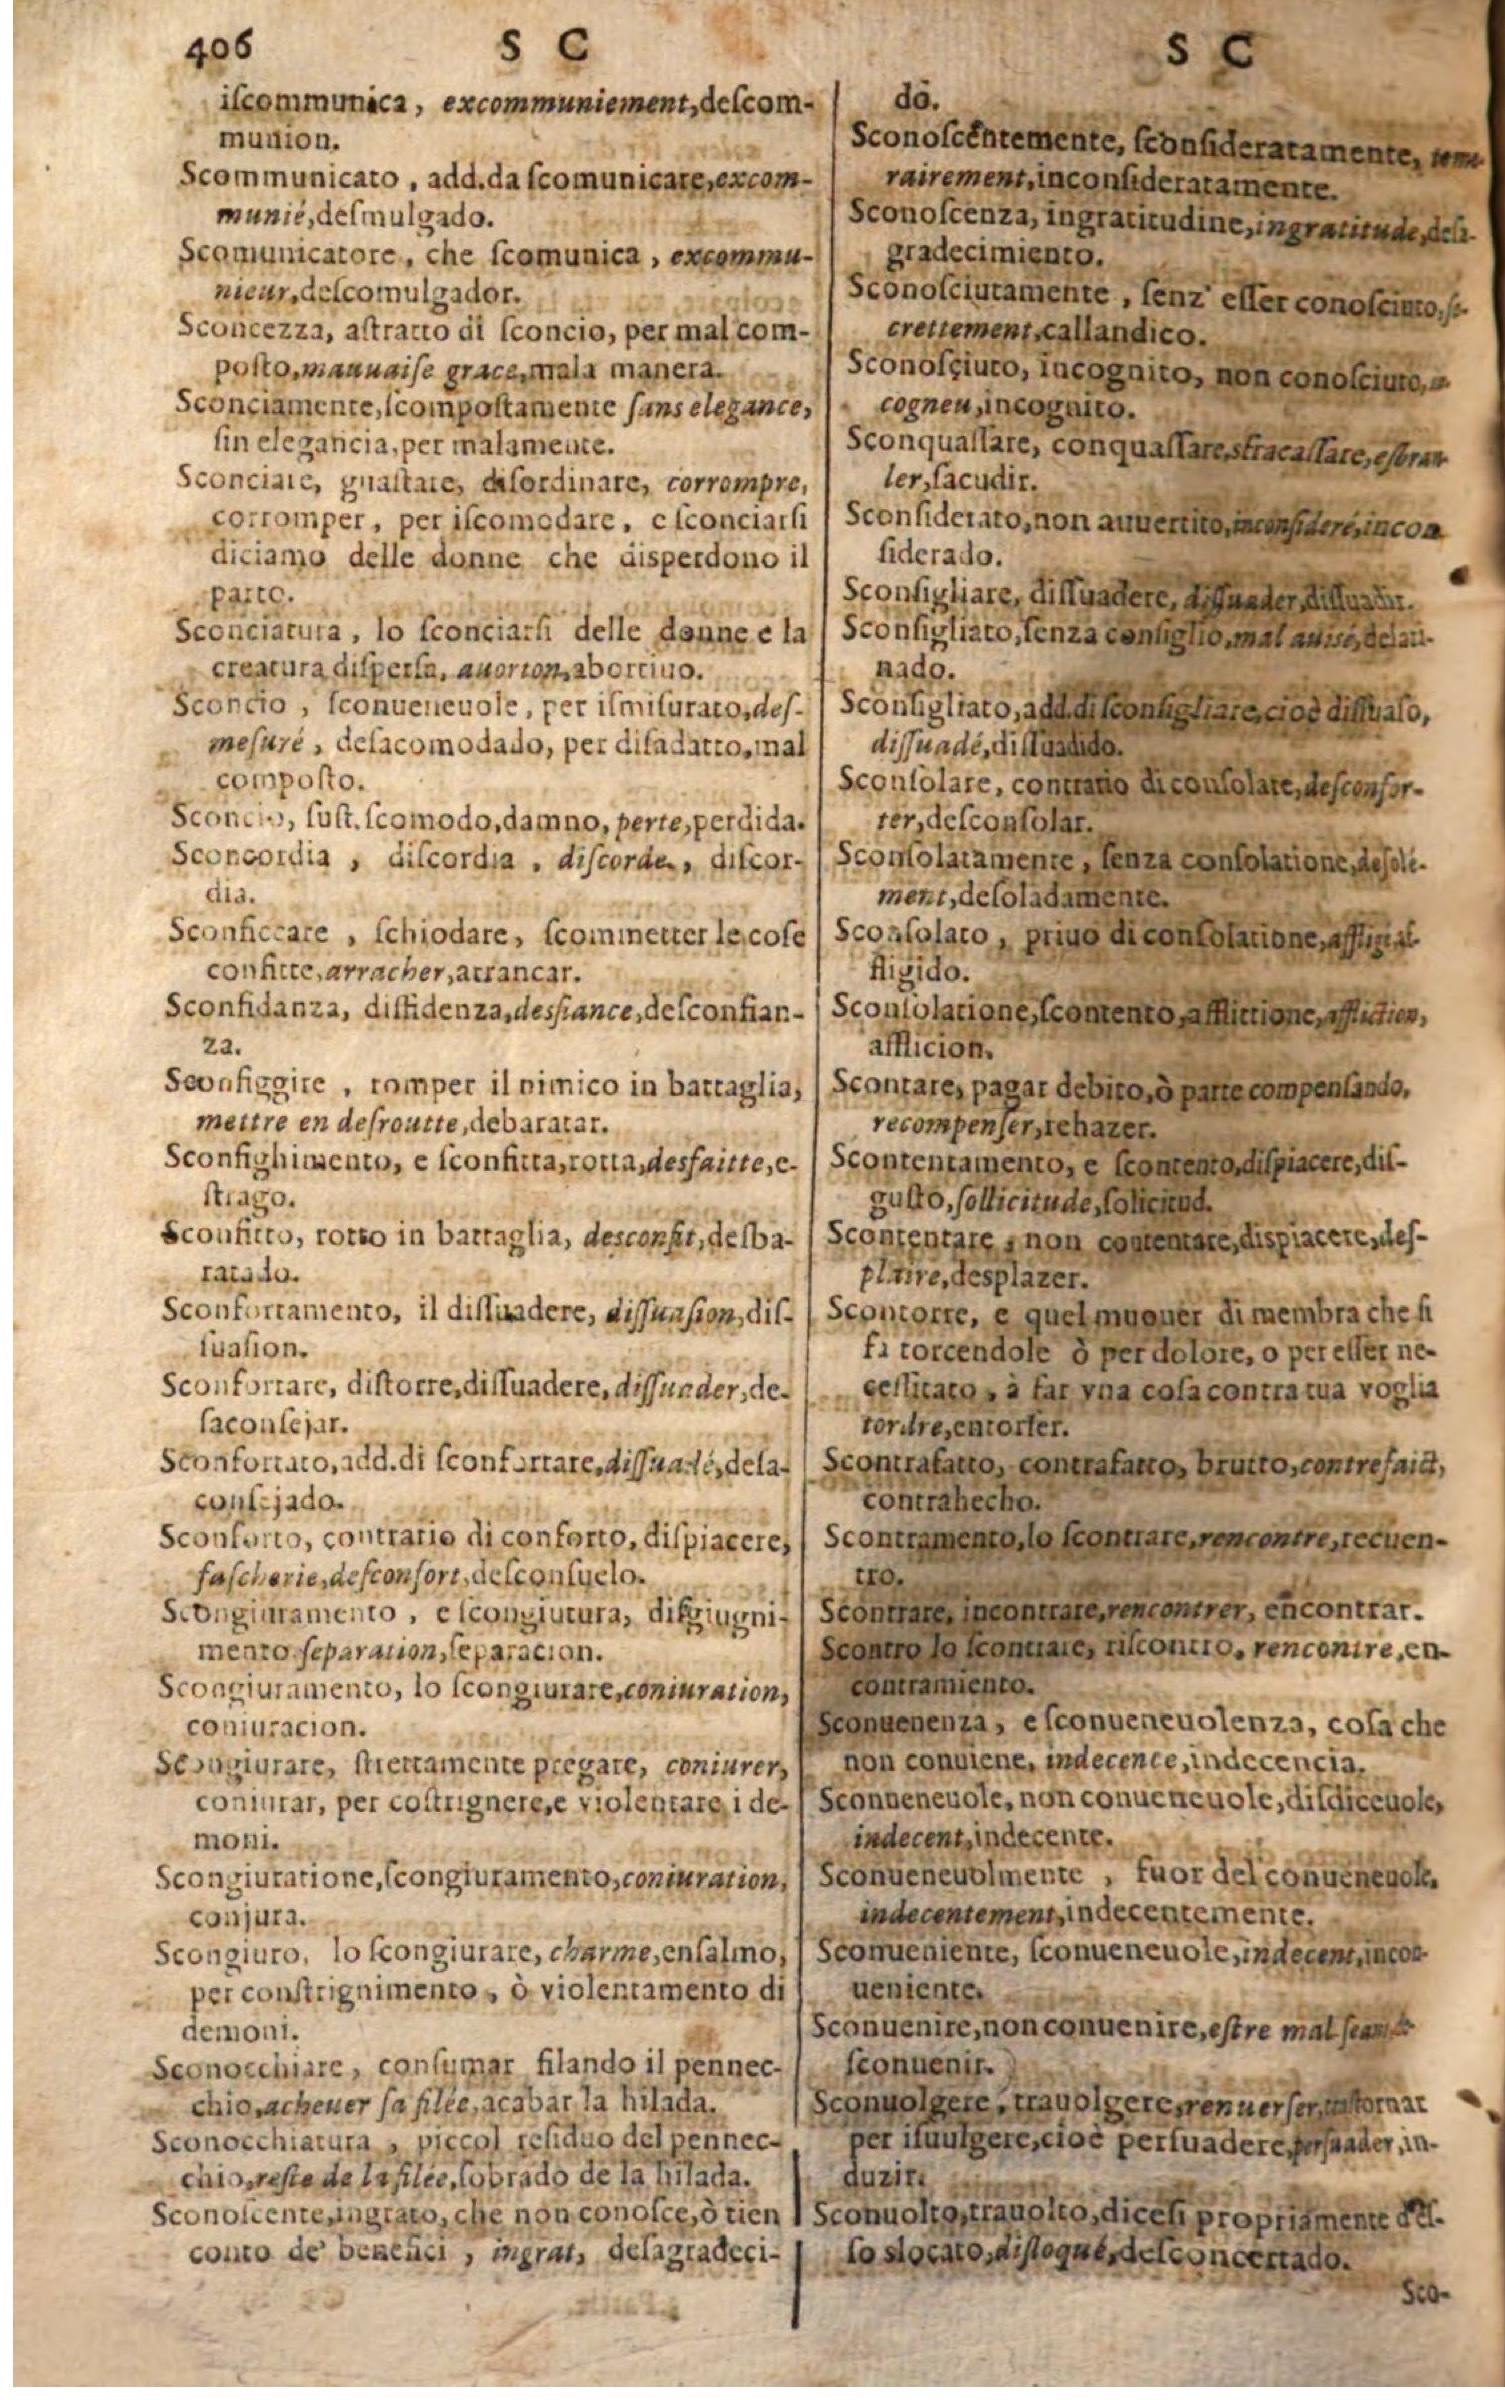 406 S C
iſcommunica, excommuniement,deſcom-
munion.
Scommunicato, add.da ſcomunicare,excom-
munié,deſmulgado.
Scomunicatore, che ſcomunica, excommu-
nieur,deſcomulgador.
Sconcezza, aſtratto di ſconcio, per mal com-
poſto,mauuaiſe grace,mala manera.
Sconciamente,ſcompoſtamente ſans elegance,
ſin elegancia,per malamente.
Sconciare, guaſtare, diſordinare, corrompre,
corromper, per iſcomodare, e ſconciarſi
diciamo delle donne che disperdono il
parto.
Sconciatura, lo ſconciarſi delle donne e la
creatura diſperſa, auorton,abortiuo.
Sconcio, ſconueneuole, per iſmiſurato,deſ-
meſuré, deſacomodado, per diſadatto,mal
compoſto.
Sconcio, ſuſt.ſcomodo,damno,perte,perdida.
Sconcordia, diſcordia, diſcorde, diſcor-
dia.
Sconficcare, ſchiodare, ſcommetter le coſe
confitte,arracher,arrancar.
Sconfidanza, diffidenza,desfiance,deſconfian-
za.
Sconfiggire, romper il nimico in battaglia,
mettre en deſroutte,debaratar.
Sconfighimento, e ſconfitta,rotta,desfaitte,e-
ſtrago.
Sconfitto, rotto in battaglia, desconfit,deſba-
ratado.
Sconfortamento, il diſſuadere, diſſuaſion,diſ-
ſuaſion.
Sconfortare, diſtorre,diſſuadere,diſſuader,de-
ſaconſejar.
Sconfortato,add.di ſconfortare,diſſuadé,deſa-
conſejado.
Sconforto, contrario di conforto, diſpiacere,
faſcherie,deſconfort,deſconſuelo.
Scongiuramento, e ſcongiutura, diſgiugni-
mento ſeparation,ſeparacion.
Scongiuramento, lo ſcongiurare,coniuration,
coniuracion.
Scongiurare, ſtrettamente pregare, coniurer,
coniurar, per coſtrignere,e violentare i de-
moni.
Scongiuratione,ſcongiuramento,coniuration,
conjura.
Scongiuro, lo ſcongiurare, charme,enſalmo,
per conſtrignimento, ò violentamento di
demoni.
Sconocchiare, conſumar filando il pennec-
chio,acheuer ſa filée,acabar la hilada.
Sconocchiatura, piccol reſiduo del pennec-
chio,reſte de la filée,ſobrado de la hilada.
Sconoſcente,ingrato, che non conoſce,ò tien
conto de' beneſici, ingrat, deſagradeci-
S C
do.
Sconoſcentemente, ſconſideratamente, teme-
rairement,inconſideratamente.
Sconoſcenza, ingratitudine,ingratitude,deſa-
gradecimiento.
Sconoſciutamente, ſenz' eſſer conoſciuto,ſe-
crettement,callandico.
Sconoſciuto, incognito, non conoſciuto,
cogneu,incognito.
Sconquaſſare, conquaſſare,sfracaſſare,esbran
ler,ſacudir.
Sconſiderato,non auuertito,inconſideré,incon
ſiderado.
Sconſigliare, diſſuadere, diſſuader,diſſuadir.
Sconſigliato,ſenza conſiglio,mal auisé,
nado.
Sconſigliato,add.di ſconſigliare,cioè diſſuaſo,
diſſuadé,diſſuadido.
Sconſolare, contrario di conſolare,deſconfor-
ter,deſconſolar.
Sconſolatamente, ſenza conſolatione,deſolé-
ment,deſoladamente.
Sconſolato, priuo di conſolatione,affligé,af-
fligido.
Sconſolatione,ſcontento,afflittione,affliction,
afflicion.
Scontare, pagar debito,ò parte compenſando,
recompenſer,rehazer.
Scontentamento, e ſcontento,diſpiacere,diſ-
guſto,ſollicitude,ſolicitud.
Scontentare, non contentare,dispiacere,deſ-
plaire,desplazer.
Scontorre, e quel muouer di membra che ſi
fa torcendole ò per dolore, o per eſſer ne-
ceſſitato, à far vna coſa contra tua voglia
tordre,entorſer.
Scontrafatto, contrafatto, brutto,contrefaict,
contrahecho.
Scontramento,lo ſcontrare,rencontre,recuen-
tro.
Scontrare, incontrare,rencontrer, encontrar.
Scontro lo ſcontrare, riſcontro, rencontre,en-
contramiento.
Sconuenenza, e ſconueneuolenza, coſa che
non conuiene, indecence,indecencia.
Sconueneuole, non conueneuole,diſdiceuole,
indecent,indecente.
Sconueneuolmente, fuor del conueneuole,
indecentement,indecentemente.
Sconueniente, ſconueneuole,indecent,incon-
ueniente.
Sconuenire,non conuenire,eſtre mal
ſconuenir.
Sconuolgere, trauolgere,renuerſer,traſtornar
per iſuulgere,cioè perſuadere,perſuader,in-
duzir.
Sconuolto,trauolto,diceſi propriamente d'eſ-
ſo slogato,disloqué,deſconcertado.
Sco-